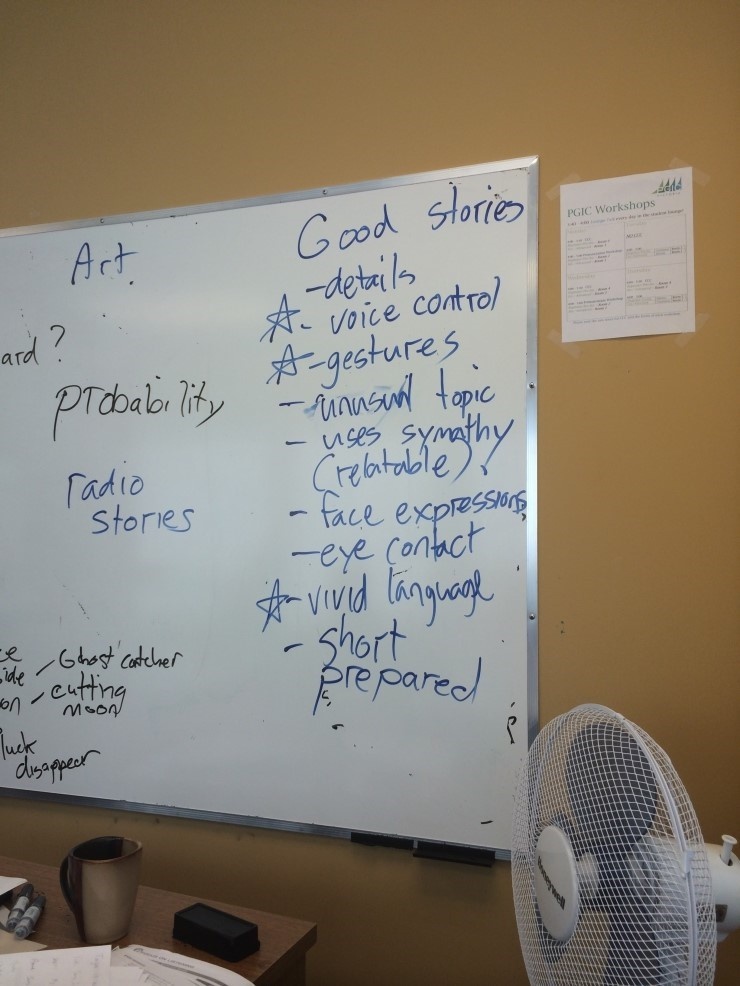 Art
ard?
probability
radio
stories
Ghost catcher
cutting
moon
luck
disappear
Good stories
- details
☆- voice control
☆- gestures
- unusual topic
- uses symathy
(relatable)
- face expressions
- eye contact
☆- vivid language
- short
prepared
PGIC Workshops
Honeywell